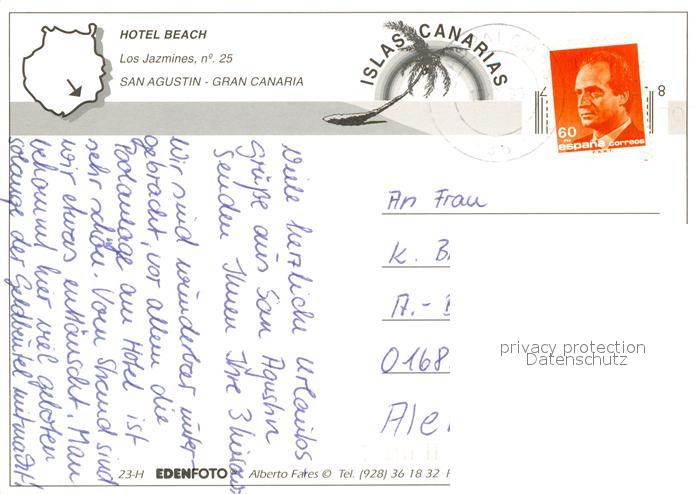 HOTEL BEACH
Los Jazmines, nº. 25
SAN AGUSTIN - GRAN CANARIA
ISLAS CANARIAS
8
60
PTA
españa correos
F.N.M.T.
Viele herzliche Urlaubs
grüße aus San Agustin
senden Ihnen Ihre 3
Wir sind wunderbar unter-
gebracht, vor allem die
Poolanlage am Hotel ist
sehr schön. Vom Strand sind
wir etwas enttäuscht. Man
bekommt hier viel geboten
solange der Geldbeutel mitmacht!
An Frau
K. B
A.-
0168
Ale
privacy protection
Datenschutz
23-H EDENFOTO Alberto Fares © Tel. (928) 36 18 32